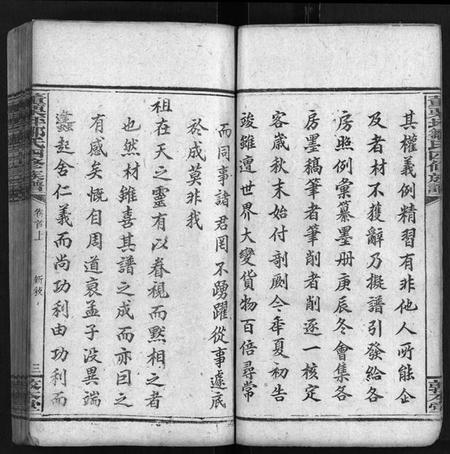 其權義例精習有非他人所能企
及者材不獲辭乃擬譜引發給各
房照例彙纂墨册庚辰冬會集各
房墨稿筆者筆削者削逐一核定
客歲秋末始付剞劂今年夏初告
竣雖遭世界大變貨物百倍尋常
而同事諸君罔不踴躍從事遽底
於成莫非我
祖在天之靈有以眷視而默相之者
也然材雖喜其譜之成而亦曰之
有感矣慨自周道衰孟子没異端
蠭起舍仁義而尚功利由功利而
卷首上
三